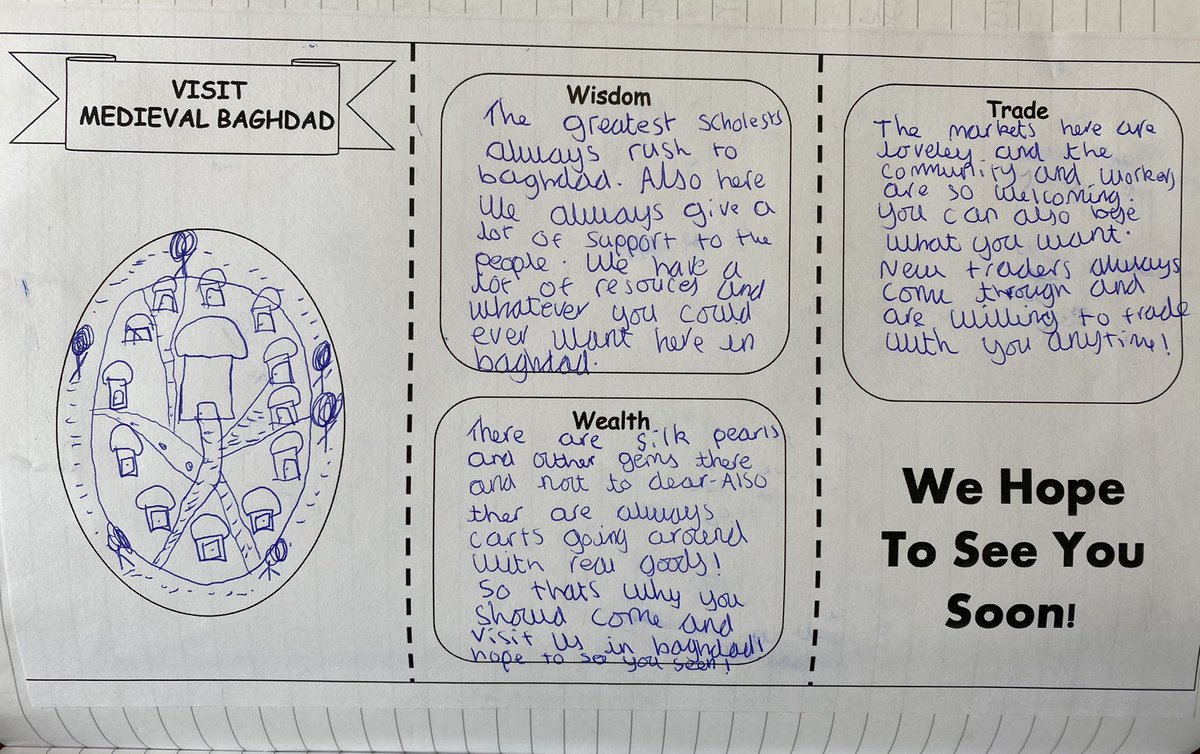 VISIT
MEDIEVAL BAGHDAD
Wisdom
The greatest scholests
always rush to
baghdad. Also here
We always give a
lot of support to the
people. We have a
lot of resouces and
whatever you could
ever want here in
baghdad.
Wealth
There are silk pearls
and outher gems there
and not to dear-Also
ther are always
carts going around
with real goods!
So thats why you
should come and
visit us in baghdad!
hope to se you seen!
Trade
The markets here are
loveley and the
community and workers
are so welcoming.
you can also
what you want.
New traders always
come through and
are willing to trade
with you anytime!
We Hope
To See You
Soon!